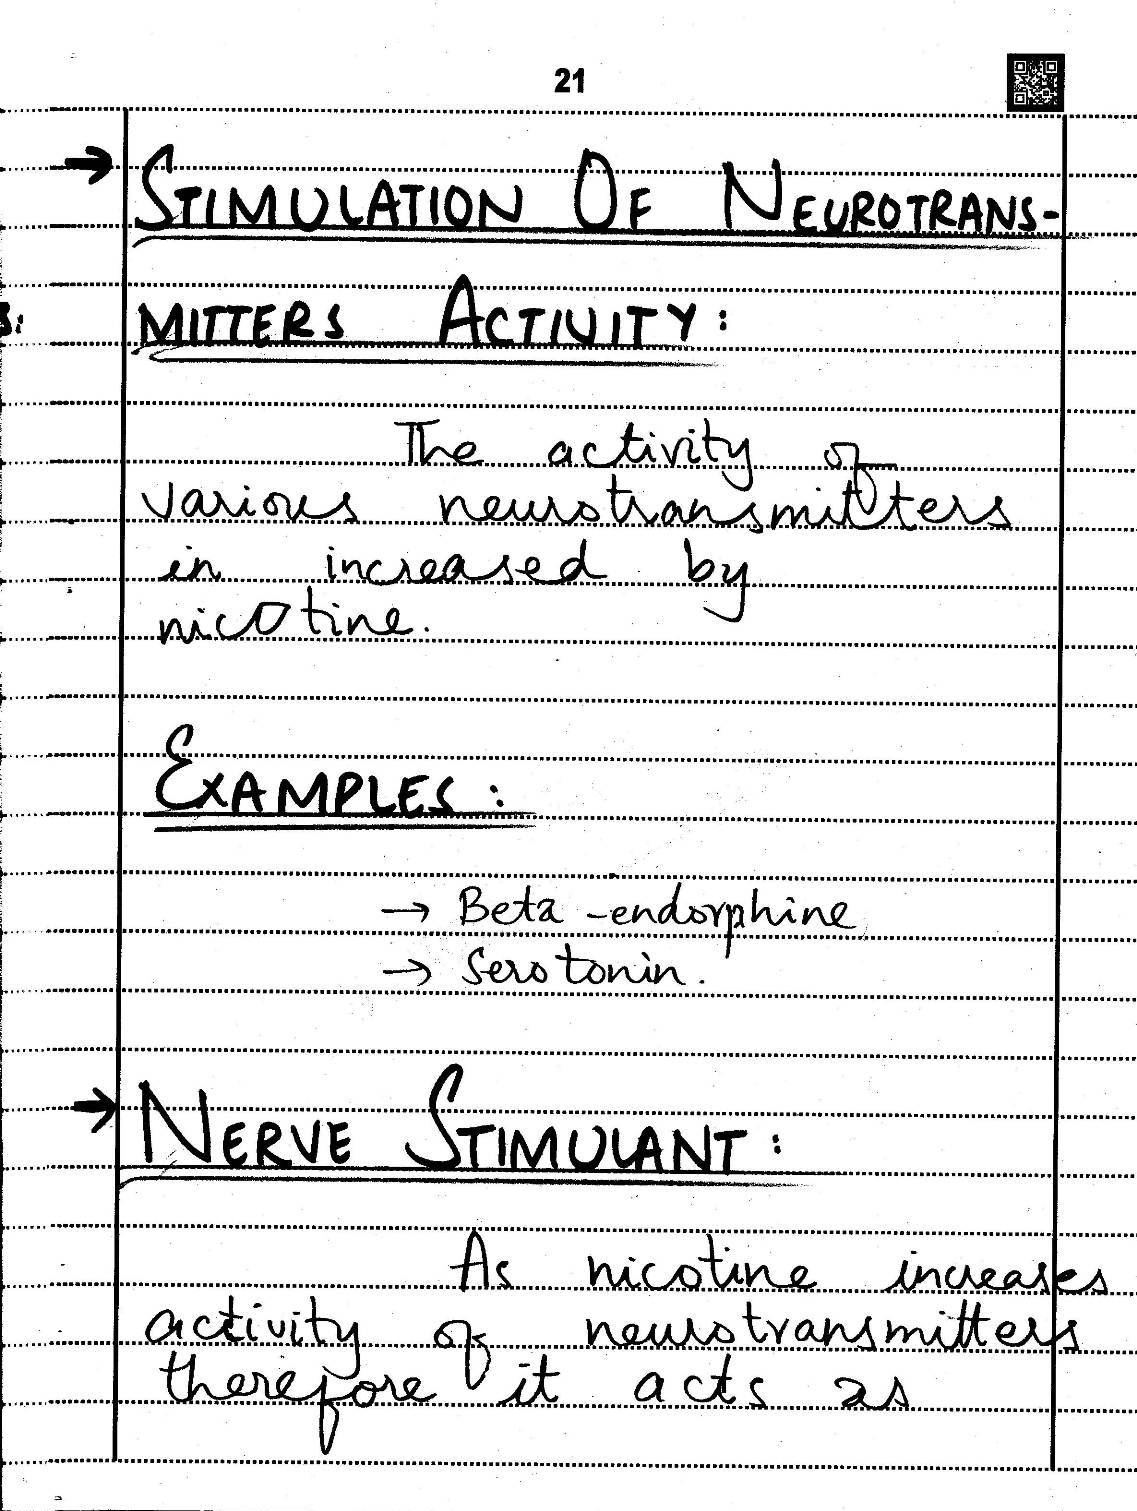 21
→ STIMULATION OF NEUROTRANS-
MITTERS ACTIVITY:
The activity of
various neurotransmitters
in increased by
nicotine.
EXAMPLES:
→ Beta-endorphine
→ Serotonin.
→ NERVE STIMULANT:
As nicotine increases
activity of neurotransmitters
therefore it acts as